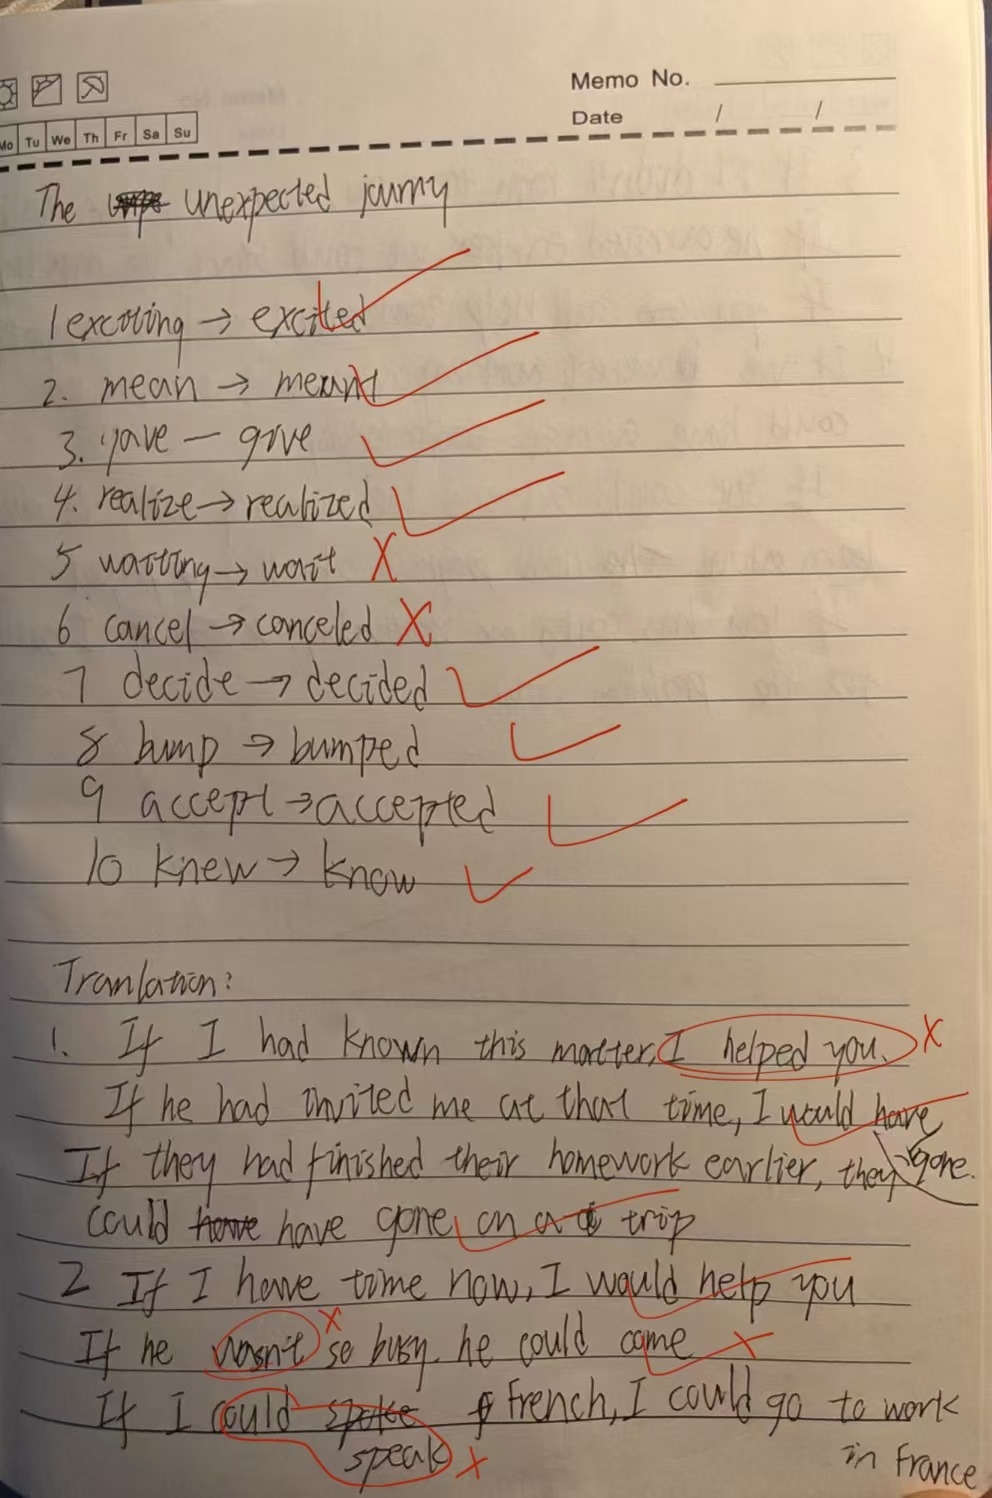 Memo No.
Date / /
Mo Tu We Th Fr Sa Su
The unexpected journy
1 exciting → excited
2. mean → meant
3. gave — give
4. realize → realized
5 waiting → wait X
6 cancel → canceled X
7 decide → decided
8 bump → bumped
9 accept → accepted
10 knew → know
Tranlation:
1. If I had known this matter, I helped you. X
If he had invited me at that time, I would have gone.
If they had finished their homework earlier, they
could have gone on a trip
2 If I have time now, I would help you
If he wasn't X so busy. he could come X
If I could speak French, I could go to work
in France X